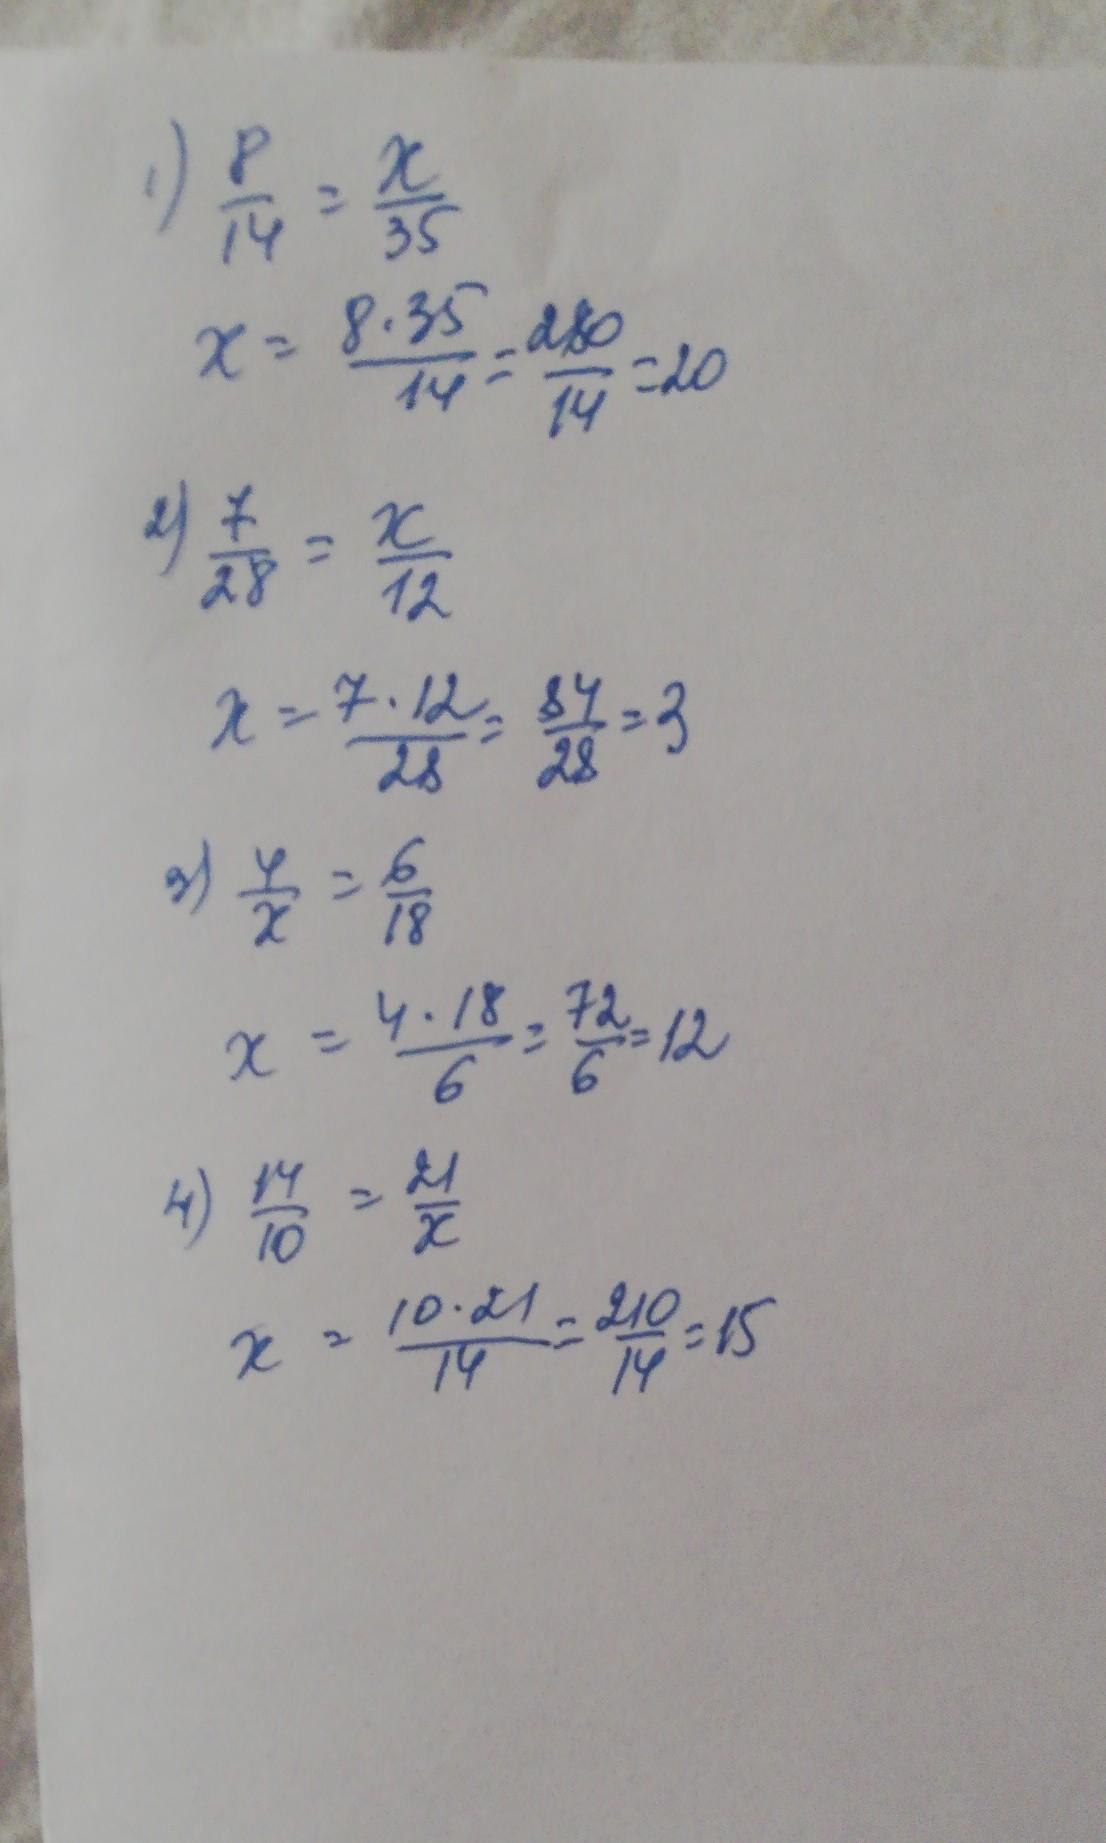 1) 8/14 = x/35
x = 8·35/14 = 280/14 = 20
2) 7/28 = x/12
x = 7·12/28 = 84/28 = 3
3) 4/x = 6/18
x = 4·18/6 = 72/6 = 12
4) 14/10 = 21/x
x = 10·21/14 = 210/14 = 15